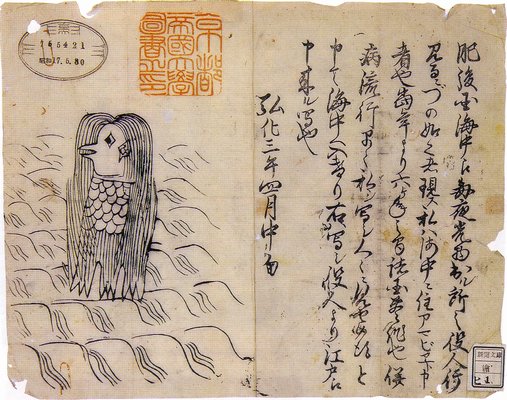 肥後国海中え毎夜光物出ル所之役人行
見るニづの如之者現ス私ハ海中ニ住アマビヱト申
者也当年より六ヶ年之間諸国豊作也併
病流行早々私ヲ写シ人々ニ見セ候得と
申て海中へ入けり右写シ役人より江戸え
申来ル写也
弘化三年四月中旬
京都
帝國大學
圖書之印
165421
昭和17.5.30